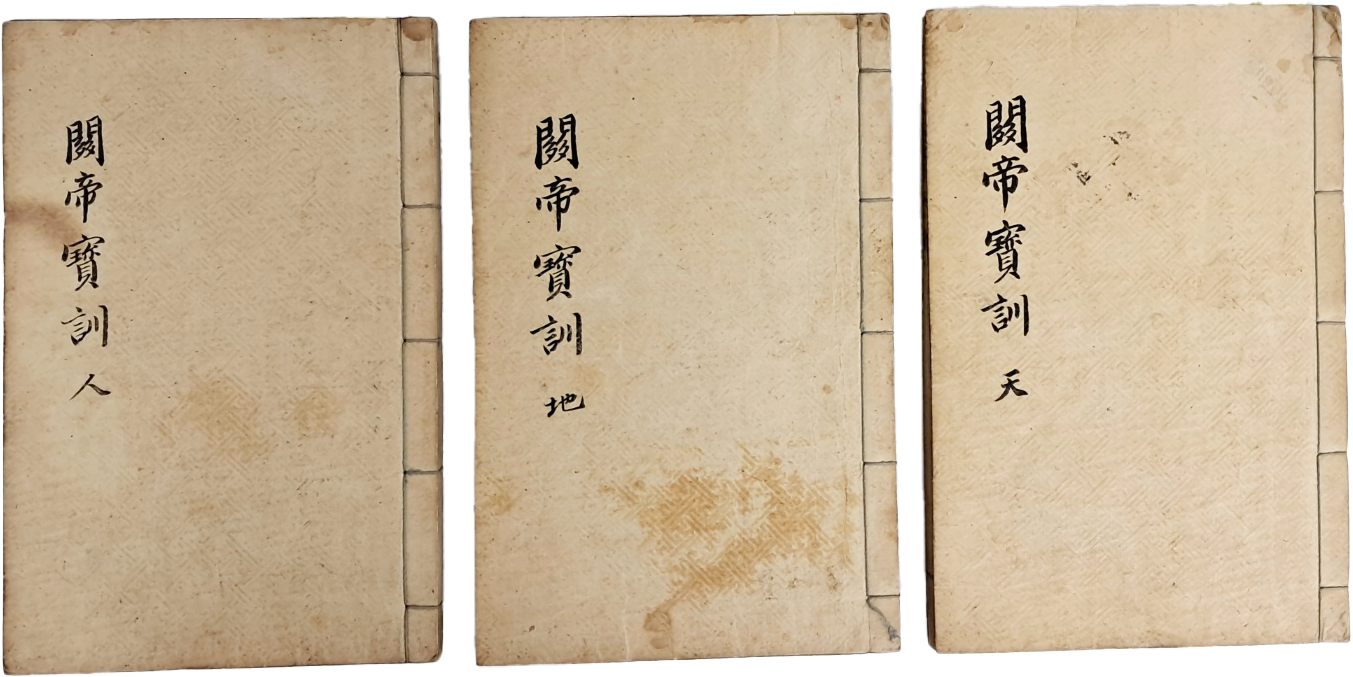 關帝寶訓 天
關帝寶訓 地
關帝寶訓 人